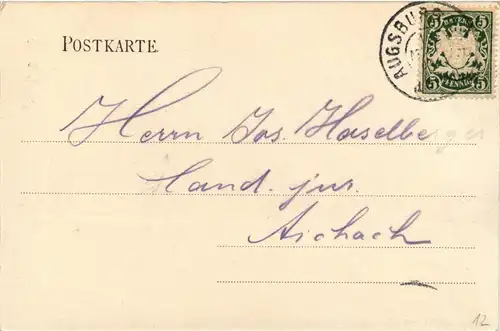 POSTKARTE.
AUGSBURG
BAYERN
5 5
5 PFENNIG 5
Herrn Jos. Haselberger
Cand. jur.
Aichach
12